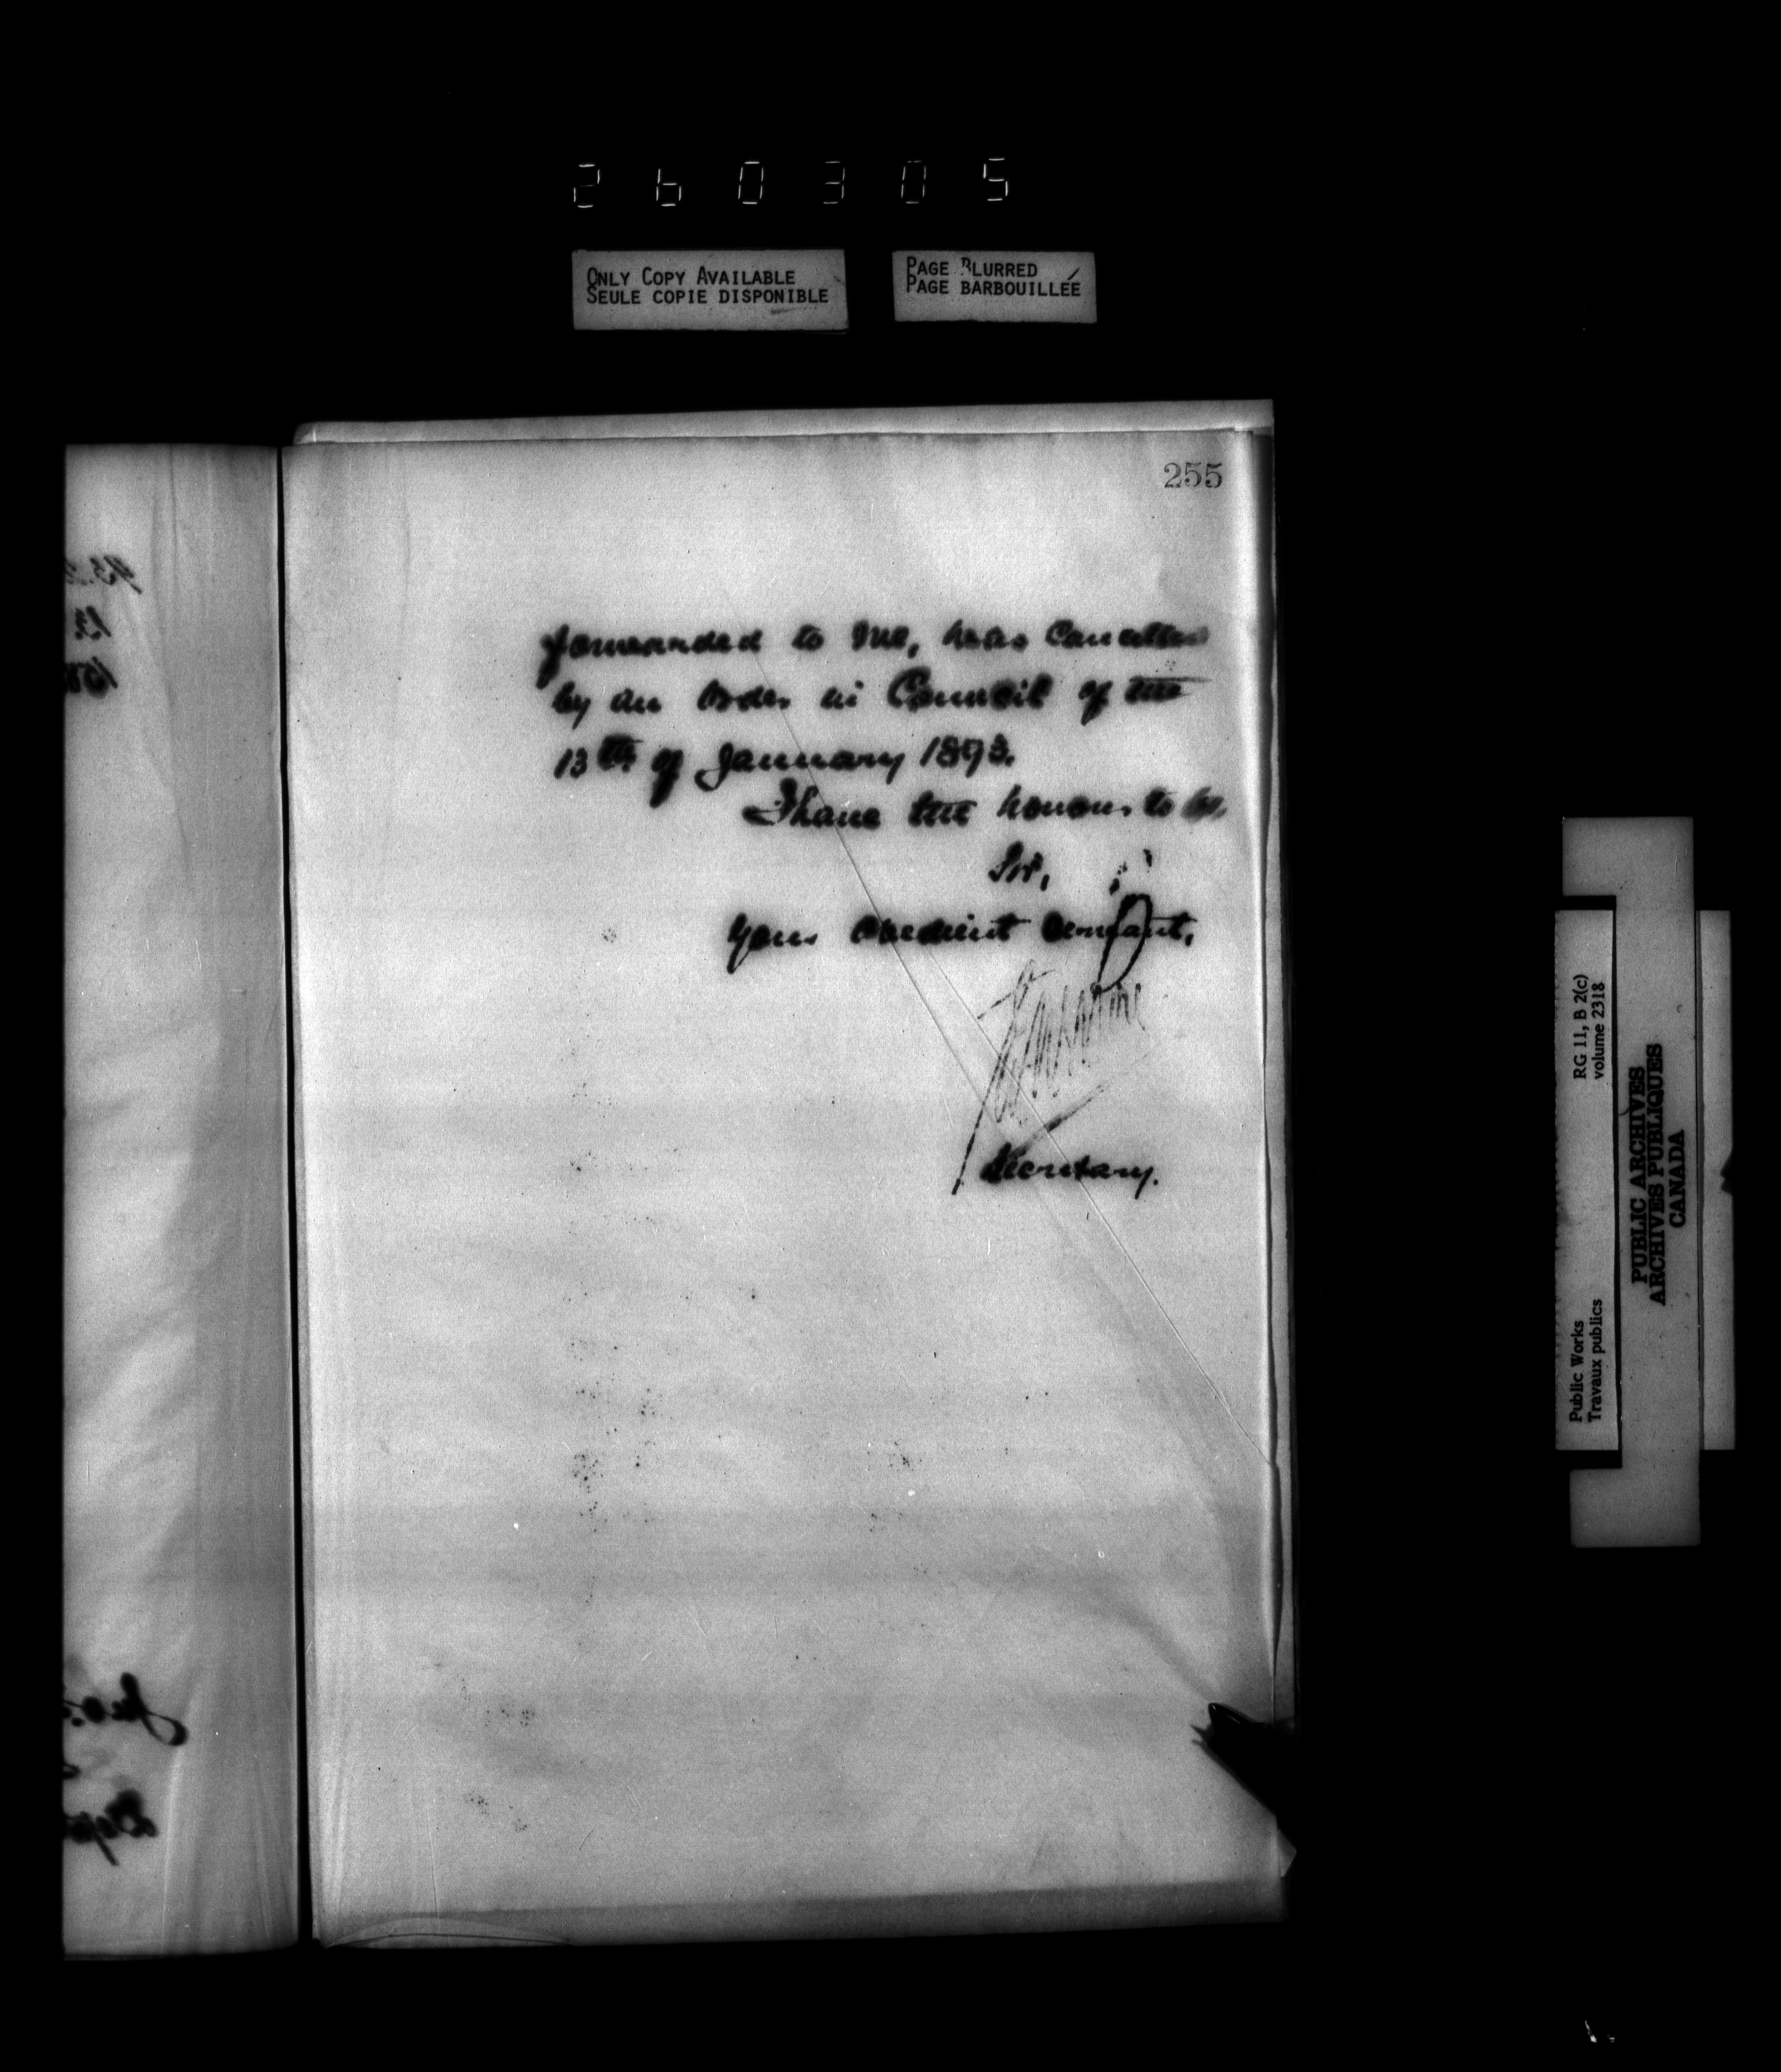 260305
ONLY COPY AVAILABLE
SEULE COPIE DISPONIBLE
PAGE BLURRED
PAGE BARBOUILLÉE
255
forwarded to me, was cancelled
by an Order in Council of the
13th of January 1893.
I have the honour to be,
Sir,
Your obedient servant,
Secretary.
RG 11, B 2(c)
volume 2318
Public Works
Travaux publics
PUBLIC ARCHIVES
ARCHIVES PUBLIQUES
CANADA